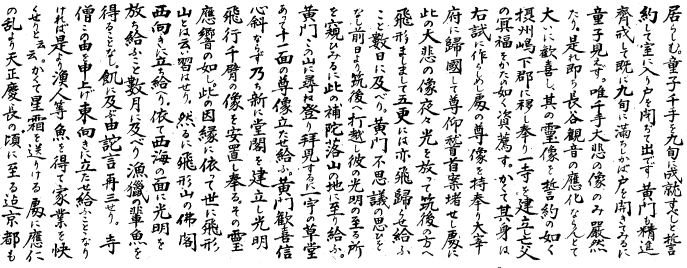 居らしむ。童子千手を九旬に成就すべしと誓
約して室に入り戸を閉ぢて出でず。黄門も精進
齊戒して既に九旬に満ちしかば戸を開きみるに
童子見えず。唯千手大悲の像のみ嚴然
たり。是れ即ち長谷觀音の應化ならんとて
大いに歓喜し、其の靈像を誓約の如く
摂州嶋下郡に移し奉り一寺を建立し父
の冥福をかたの如く資薦す。かくて其身は
右試に作らしめし處の尊像を持奉り大宰
府に歸國して尊仰誓首崇堵せし處に
此の大悲の像夜々光を放つて筑後の方へ
飛形ましまして五更には亦飛歸らせ給ふ
こと数日に及べり。黄門不思議の思ひを
なし前日より筑後へ打越し彼の光明の至る所
を窺ひみるに此の補陀落山の地に至り給ふ。
黄門この山に尋ね登り拝見するに一宇の草堂
あつて十一面の尊像立たせ給ふ。黄門歓喜信
心斜ならず乃ち新に堂閣を建立し光明
飛行千臂の像を安置し奉る。その靈
應響の如し。此の因縁に依て世に飛形
山とは云ひ習はせり。然るに飛形山の佛閣
西向きに立ち給ふ。依て西海の面に光明を
放ち給ふこと数月に及べり。漁獵の輩魚を
得ることなし。飢に及ぶ由詫言再三せり。寺
僧この由を申上げ東向きに立たせ給ふことなり
ければ是より漁人等魚を得て家業を快
くせりと云云。かくて星霜を送りける處に應仁
の乱より天正慶長の頃に至る迄京都も